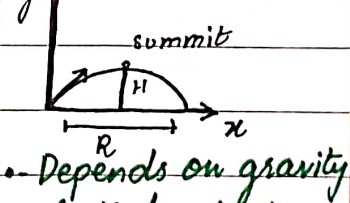 y
summit
H
R
x
•- Depends on gravity